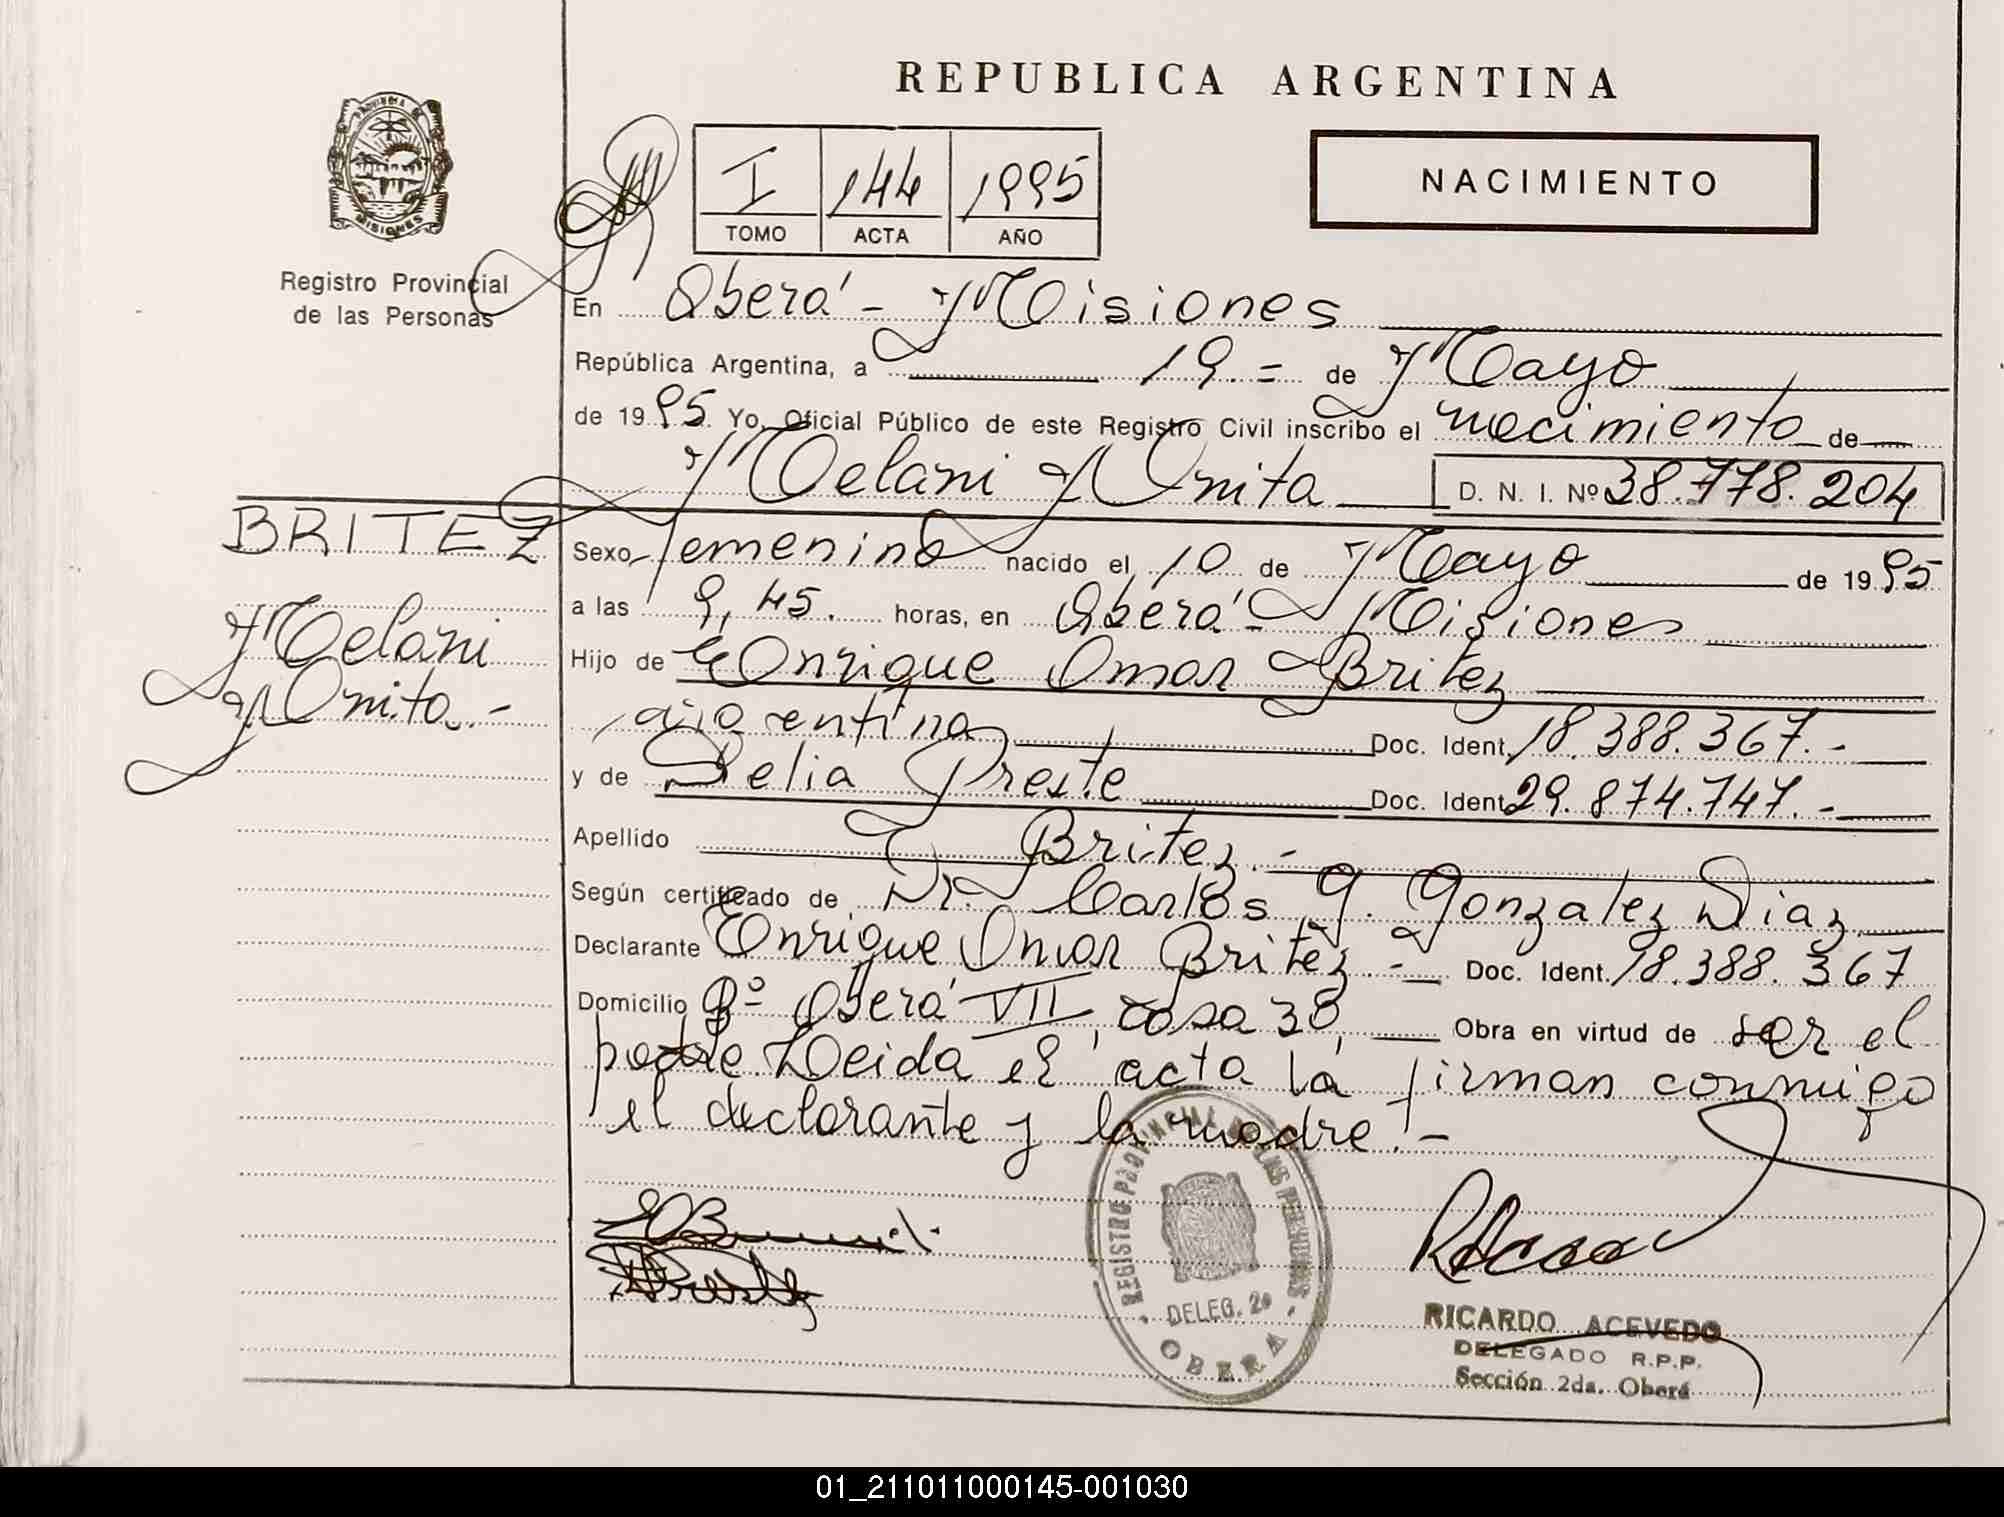 REPUBLICA ARGENTINA
PROVINCIA DE
MISIONES
Registro Provincial
de las Personas
I 144 1995
TOMO ACTA AÑO
NACIMIENTO
En Oberá - Misiones
República Argentina, a 19.= de Mayo
de 1995 Yo, Oficial Público de este Registro Civil inscribo el nacimiento de
Melani Anita D. N. I. Nº 38.778.204
BRITEZ
Melani
Anita.-
Sexo femenino nacido el 10 de Mayo de 1995
a las 9,45. horas, en Oberá - Misiones
Hijo de Enrique Omar Britez
argentina Doc. Ident. 18.388.367.-
y de Delia Preste Doc. Ident. 29.874.747.-
Apellido Britez.-
Según certificado de Dr. Carlos G. Gonzalez Diaz
Declarante Enrique Omar Britez.- Doc. Ident. 18.388.367
Domicilio Bº Oberá VII, casa 38, Obra en virtud de ser el
padre. Leida el acta la firman conmigo
el declarante y la madre.-
REGISTRO PROVINCIAL DE LAS PERSONAS
DELEG. 2a
OBERA
RICARDO ACEVEDO
DELEGADO R.P.P.
Sección 2da. Oberá
01_211011000145-001030